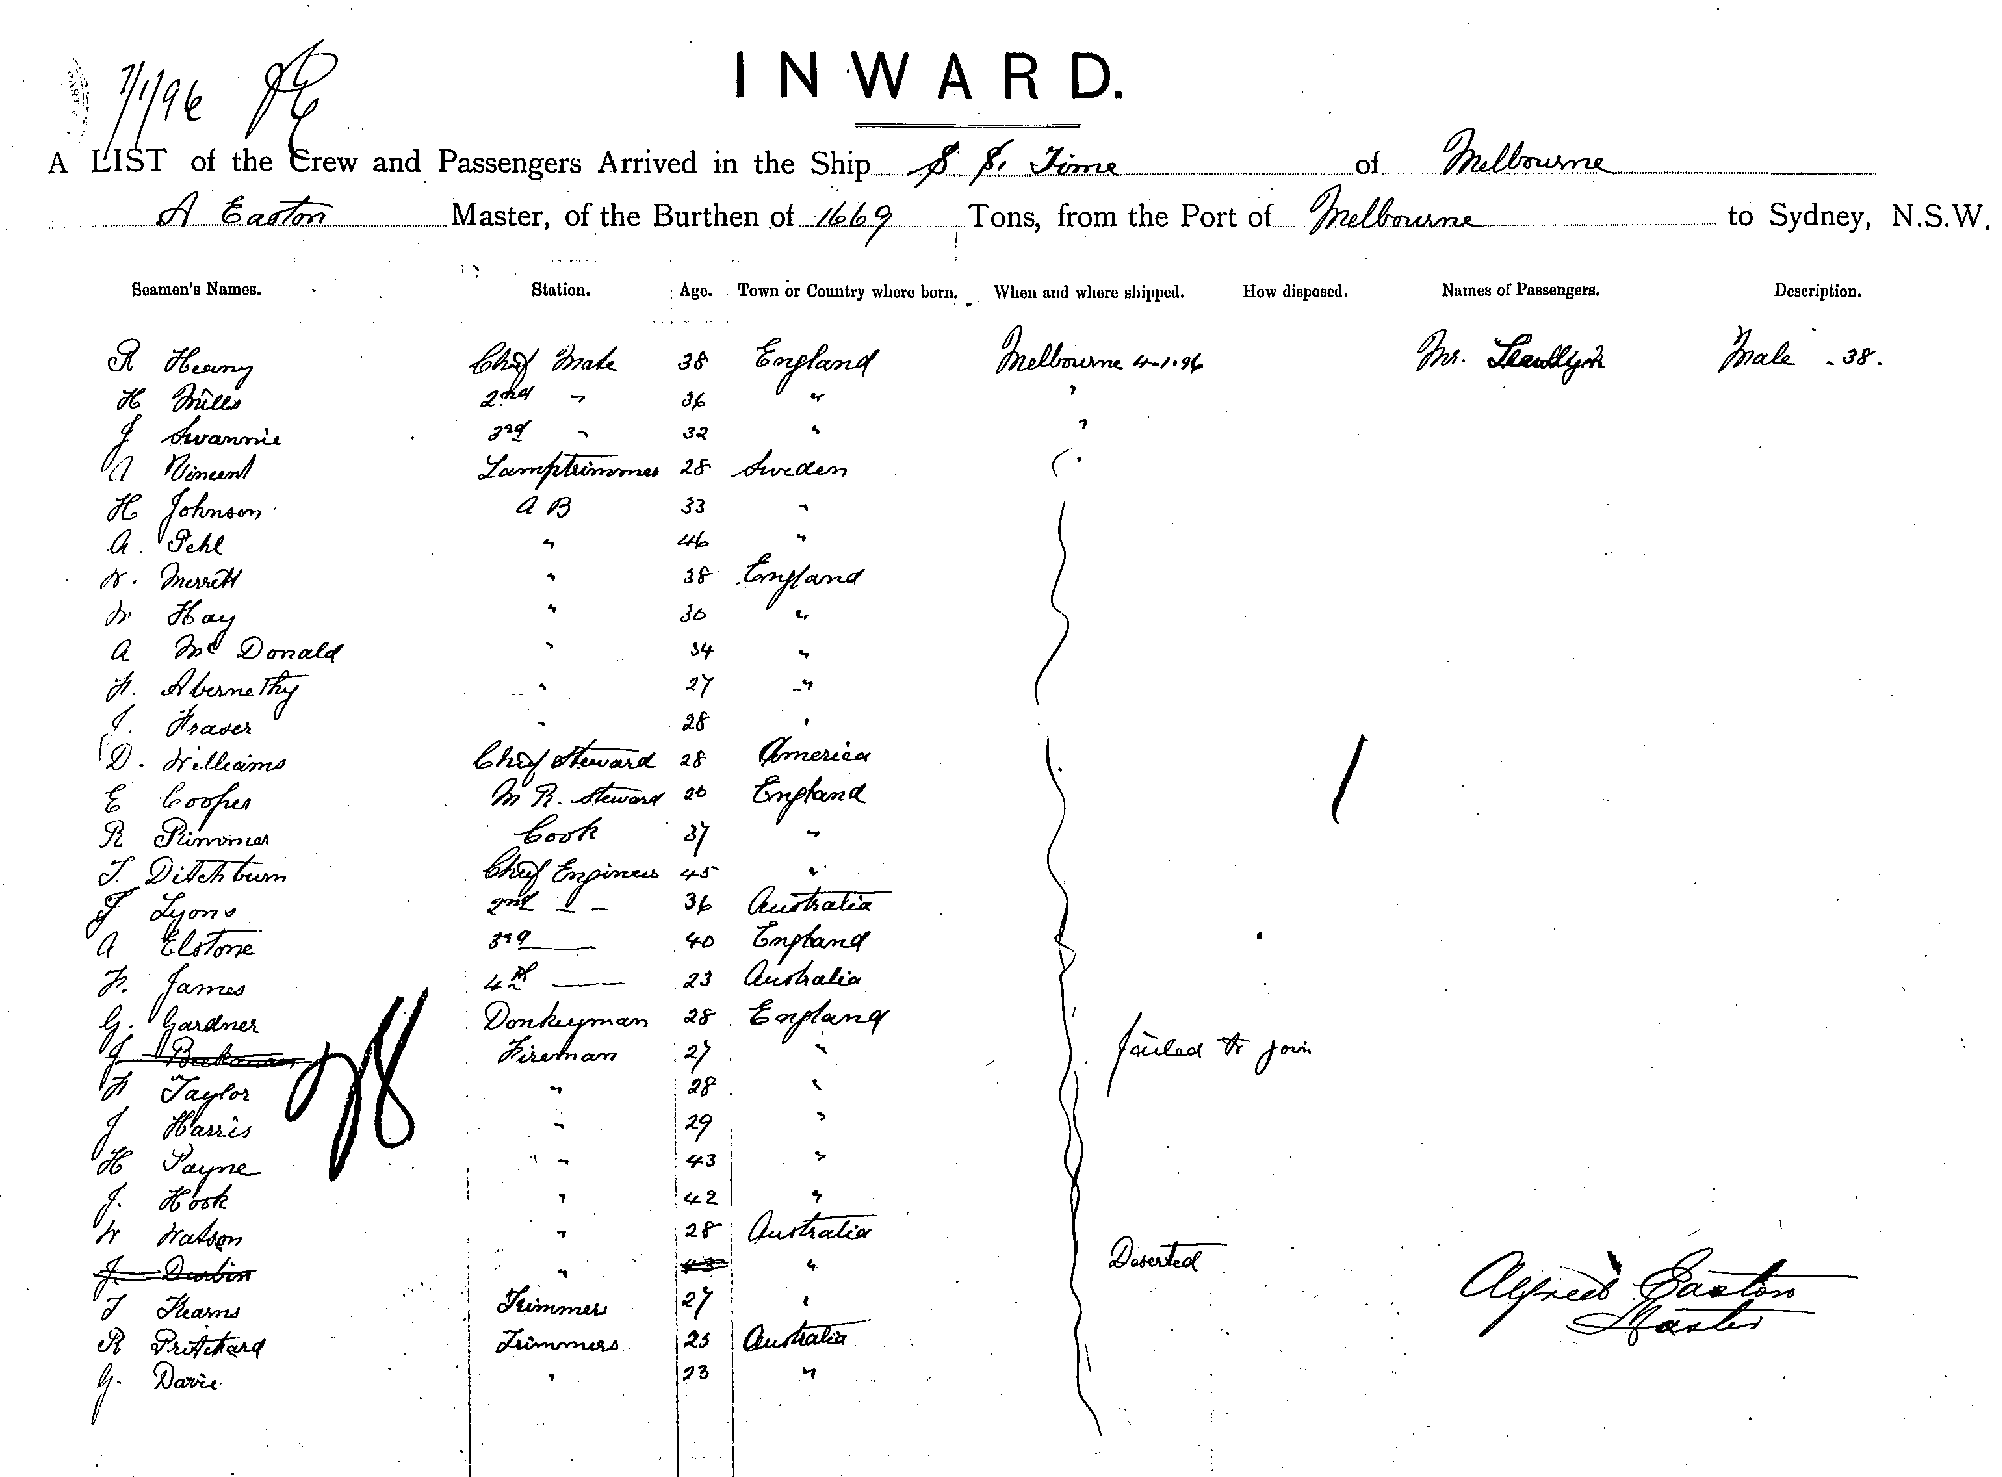 7/1/96
INWARD.
A LIST of the Crew and Passengers Arrived in the Ship S. S. Time of Melbourne
A Easton Master, of the Burthen of 1669 Tons, from the Port of Melbourne to Sydney, N.S.W.
Seamen's Names. Station. Age. Town or Country where born. When and where shipped. How disposed. Names of Passengers. Description.
R Heany Chief Mate 38 England Melbourne 4-1-96 Mr. Male 38.
H Mills 2nd " 36 " "
J Swannie 3rd " 32 " "
A Vincent Lamptrimmer 28 Sweden
H Johnson A B 33 "
A. Pehl " 46 "
W. Merrett " 38 England
W Hay " 30 "
A McDonald " 34 "
W. Abernethy " 27 "
J. Fraser " 28 "
D. Williams Chief Steward 28 America
E Cooper M R. Steward 20 England
R Rimmer Cook 37 "
T. Ditchburn Chief Engineer 45 "
J Lyons 2nd - - 36 Australia
A Elstone 3rd — 40 England
W. James 4th — 23 Australia
G. Gardner Donkeyman 28 England
J Fireman 27 " failed to join
W Taylor " 28 "
J Harris " 29 "
H Payne " 43 "
J. Hook " 42 "
W Watson " 28 Australia
J. Durbin " 43 " Deserted
T Kearns Trimmer 27 "
R Pritchard Trimmers 25 Australia
G. Davie " 23 "
28
Alfred Easton
Master